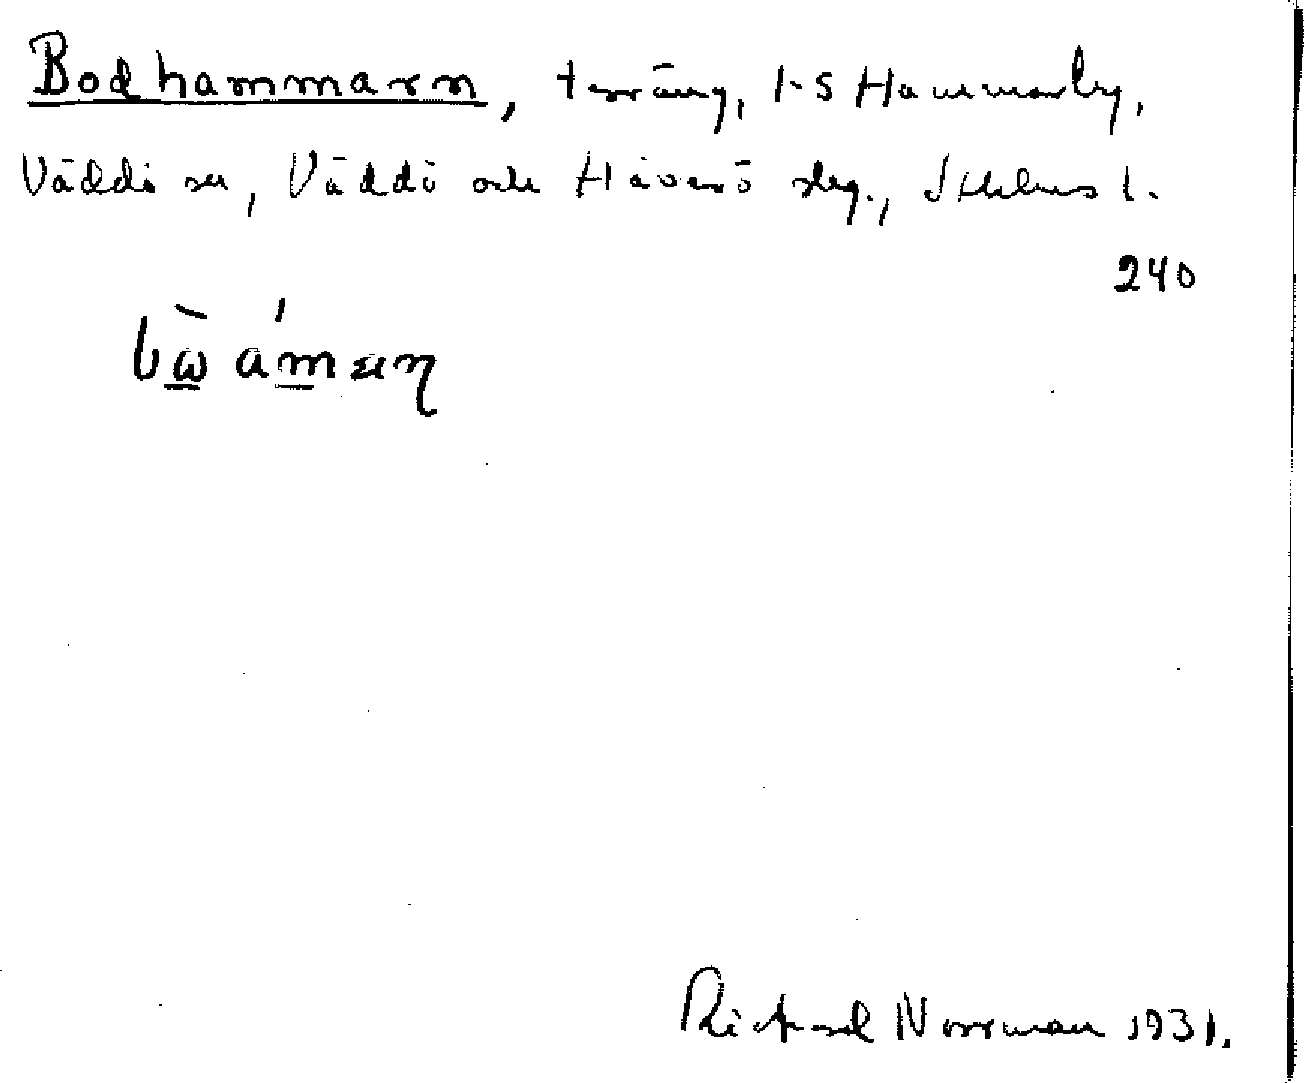 Bodhammarn, terräng, 1-5 Hammarby,
Väddö sn, Väddö och Häverö skg., Sthlms l.
240
Rickard Norrman 1931.